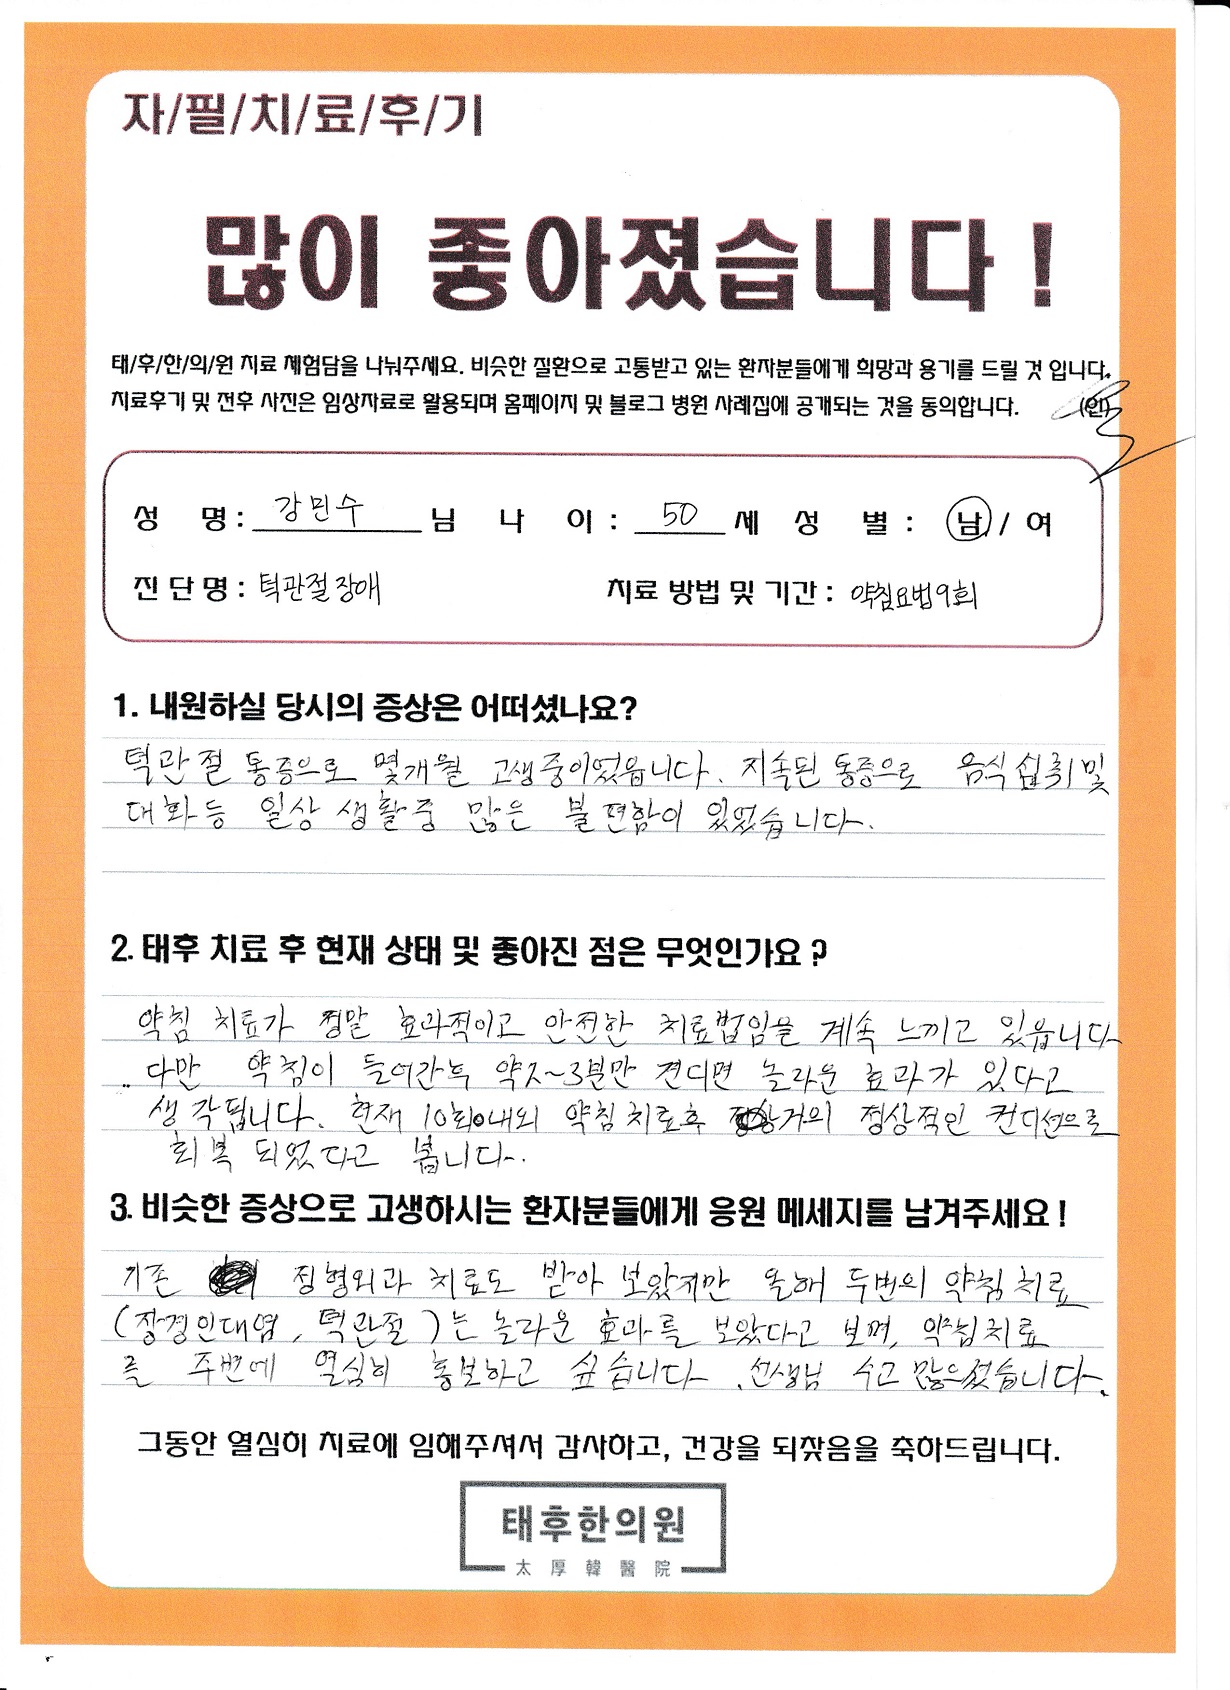 자/필/치/료/후/기
많이 좋아졌습니다 !
태/후/한/의/원 치료 체험담을 나눠주세요. 비슷한 질환으로 고통받고 있는 환자분들에게 희망과 용기를 드릴 것 입니다.
치료후기 및 전후 사진은 임상자료로 활용되며 홈페이지 및 블로그 병원 사례집에 공개되는 것을 동의합니다. (인)
성 명 : 강민수 님 나 이 : 50 세 성 별 : 남 / 여
진 단 명 : 턱관절장애 치료 방법 및 기간 : 약침요법9회
1. 내원하실 당시의 증상은 어떠셨나요?
턱관절 통증으로 몇개월 고생중이었읍니다. 지속된 통증으로 음식 섭취 및
대화등 일상 생활중 많은 불편함이 있었습니다.
2. 태후 치료 후 현재 상태 및 좋아진 점은 무엇인가요 ?
약침 치료가 정말 효과적이고 안전한 치료법임을 계속 느끼고 있읍니다
다만 약침이 들어간후 약2~3분만 견디면 놀라운 효과가 있다고
생각됩니다. 현재 10회내외 약침 치료후 거의 정상적인 컨디션으로
회복 되었다고 봅니다.
3. 비슷한 증상으로 고생하시는 환자분들에게 응원 메세지를 남겨주세요 !
기존 정형외과 치료도 받아 보았지만 올해 두번의 약침 치료
(장경인대염, 턱관절)는 놀라운 효과를 보았다고 보며, 약침치료
를 주변에 열심히 홍보하고 싶습니다. 선생님 수고 많으셨습니다.
그동안 열심히 치료에 임해주셔서 감사하고, 건강을 되찾음을 축하드립니다.
태후한의원
太厚韓醫院